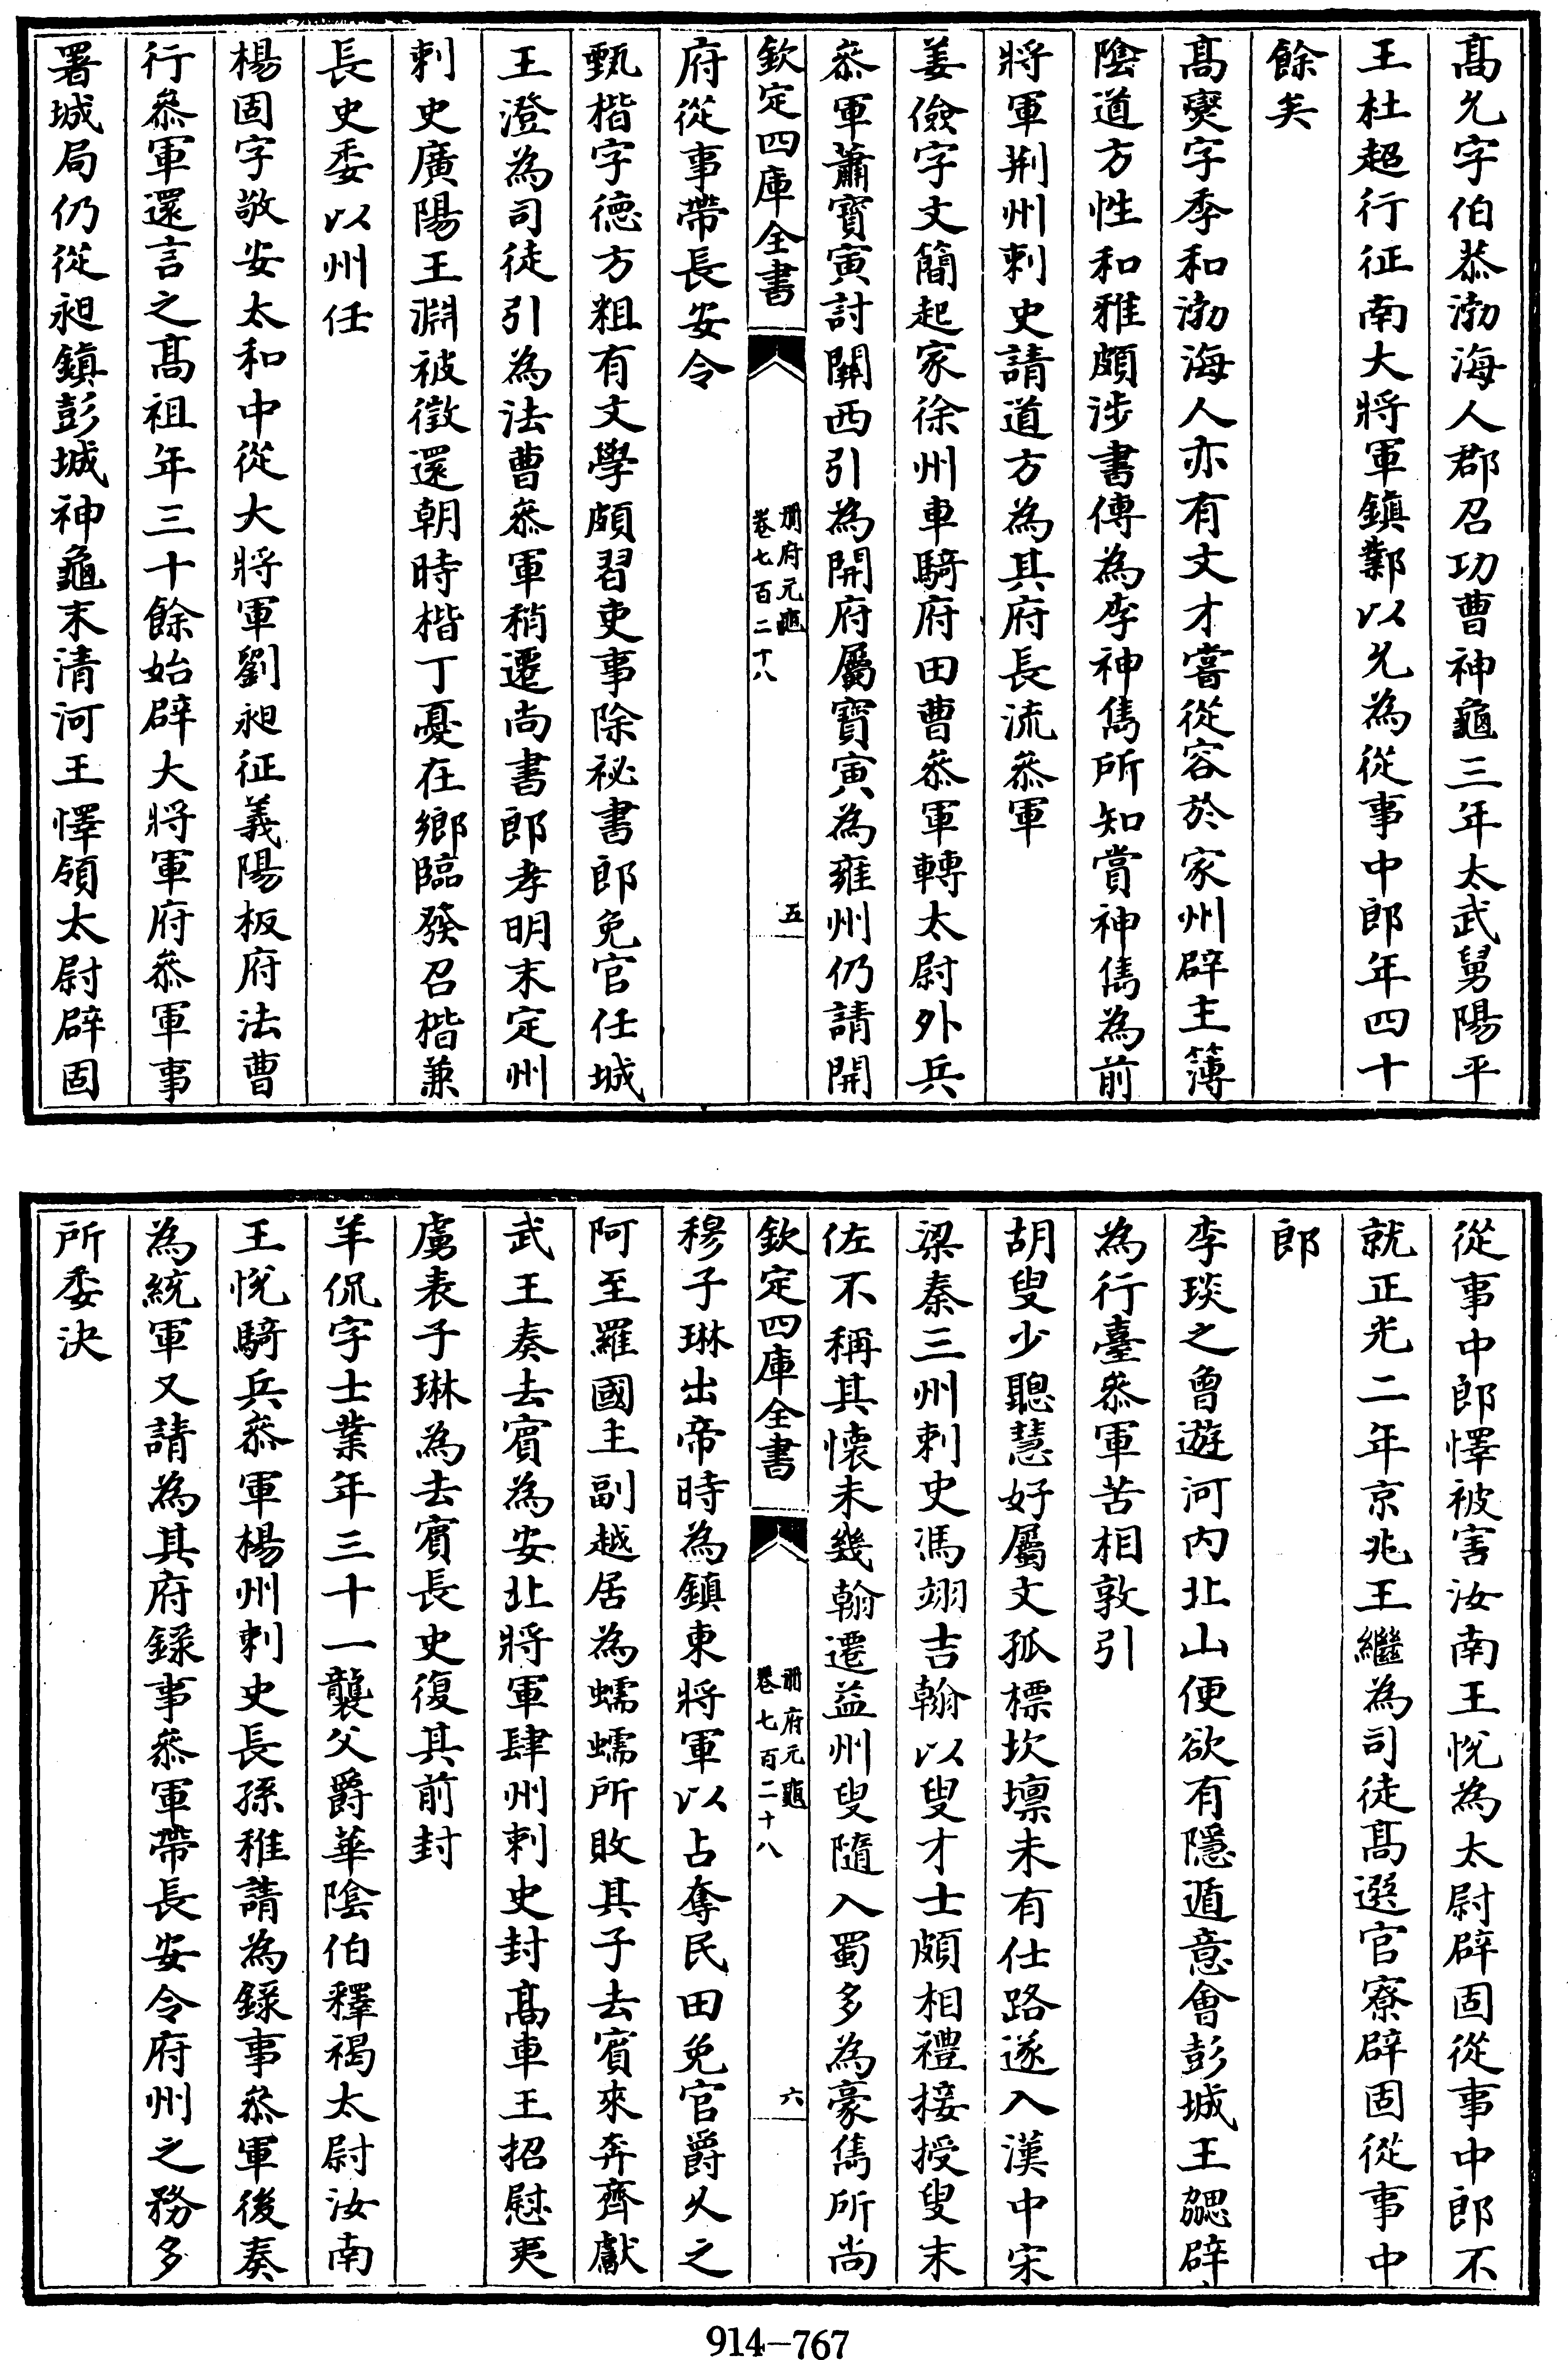 髙允字伯恭渤海人郡召功曹神龜三年太武舅陽平
王杜超行征南大將軍鎮鄴以允為從事中郎年四十
餘矣
髙㚟字季和渤海人亦有文才嘗從容於家州辟主簿
陰道方性和雅頗涉書傳為李神儁所知賞神儁為前
將軍荆州刺史請道方為其府長流叅軍
姜儉字文簡起家徐州車騎府田曹叅軍轉太尉外兵
叅軍蕭寳寅討關西引為開府屬寳寅為雍州仍請開
欽定四庫全書
冊府元龜
卷七百二十八
五
府從事帶長安令
甄楷字德方粗有文學頗習吏事除秘書郎免官任城
王澄為司徒引為法曹叅軍稍遷尚書郎孝明末定州
刺史廣陽王淵被徵還朝時楷丁憂在鄉臨發召楷兼
長史委以州任
楊固字敬安太和中從大將軍劉昶征義陽板府法曹
行叅軍還言之髙祖年三十餘始辟大將軍府叅軍事
署城局仍從昶鎮彭城神龜末清河王懌領太尉辟固
從事中郎懌被害汝南王悅為太尉辟固從事中郎不
就正光二年京兆王繼為司徒髙選官寮辟固從事中
郎
李琰之曾遊河内北山便欲有隱遁意會彭城王勰辟
為行臺叅軍苦相敦引
胡叟少聰慧好屬文孤標坎壈未有仕路遂入漢中宋
梁秦三州刺史馮翊吉翰以叟才士頗相禮接授叟末
佐不稱其懷未幾翰遷益州叟隨入蜀多為豪儁所尚
欽定四庫全書
冊府元龜
卷七百二十八
六
穆子琳出帝時為鎮東將軍以占奪民田免官爵久之
阿至羅國主副越居為蠕蠕所敗其子去賓來奔齊獻
武王奏去賓為安北將軍肆州刺史封髙車王招慰夷
虜表子琳為去賓長史復其前封
羊侃字士業年三十一襲父爵華陰伯釋褐太尉汝南
王悅騎兵叅軍楊州刺史長孫稚請為錄事叅軍後奏
為統軍又請為其府錄事叅軍帶長安令府州之務多
所委決
914—767